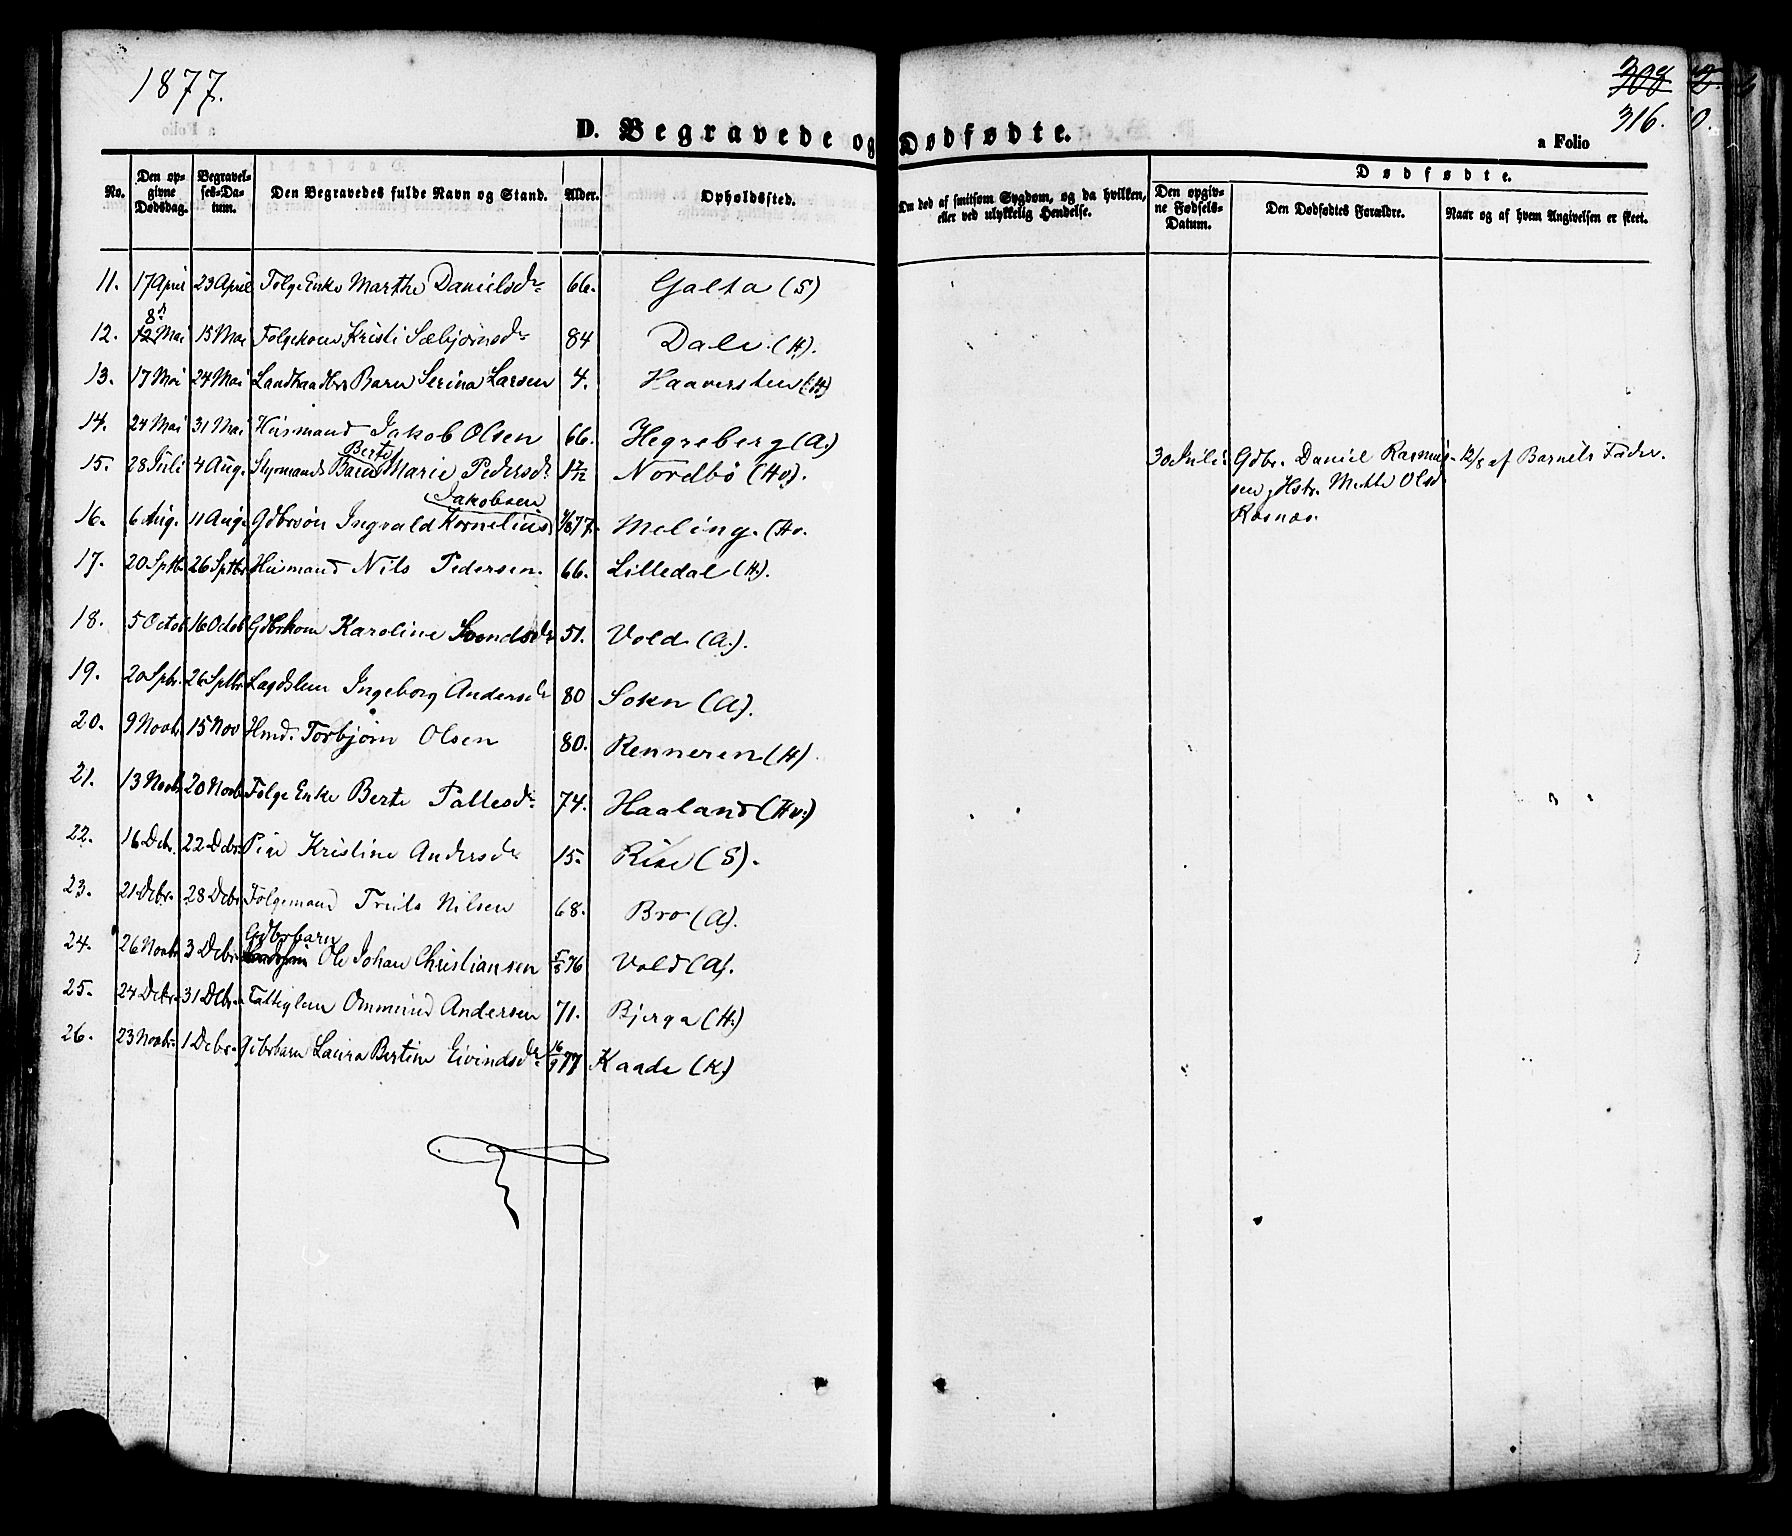 1877.
316.
D. Begravede og Dødfødte.
a Folio
No.
Den opgivne Dødsdag.
Begravelses-Datum.
Den Begravedes fulde Navn og Stand.
Alder.
Opholdssted.
Om død af smitsom Sygdom, og da hvilken, eller ved ulykkelig Hendelse.
Dødfødte.
Den opgivne Fødsels-Datum.
Den Dødfødtes Forældre.
Naar og af hvem Angivelsen er skeet.
11. 17 April 23 April Følge Enke Marthe Danielsdr 66. Galta (S)
12. 8de 12 Mai 15 Mai Følgekone Kristi Sæbjørnsdr 84 Dale (H).
13. 17 Mai 24 Mai Barn Serina Larsen 4. Haaversten (H)
14. 24 Mai 31 Mai Husmand Jakob Olsen 66. Hegreberg (A)
15. 28 Juli 4 Aug. Styrmands Barn Berte Marie Pedersdr 1 1/12 Nordbö (Hv).
30 Juli Gdbr. Daniel Rasmus- 12/8 af Barnets Fader.
sen, Hstr. Mette Olsd
Rosnæs
16. 6 Aug. 11 Aug. Gdbrsön Ingvald Kornelius Jakobsen 77. Meling. (Hv.
17. 20 Sptb. 26 Sptbr Husmand Nils Pedersen. 66. Lilledal (H.).
18. 5 Octob 16 Octob Gdbrkone Karoline Svendsdr 51. Vold (A.).
19. 20 Spbr. 26 Sptbr. Lægdslem Ingeborg Andersdr 80 Sokn (A).
20. 9 Novbr. 15 Nov Hmd. Torbjörn Olsen 80. Renneren (H)
21. 13 Novbr. 20 Novbr Følge Enke Berte Pallesdr 74. Haaland (Hv.)
22. 16 Dcbr. 22 Dcbr. Pige Kristine Andersdr 15. Rise (S).
23. 21 Dcbr. 28 Dcbr Følgemand Truls Nilsen 68. Bro (A).
24. 26 Novbr. 3 Dcbr. Gdbrbarn Ole Johan Christiansen 5/8 76 Vold (A).
25. 24 Dcbr. 31 Dcbr. Fattiglem Ommund Andersen 71. Bjerga (H.)
26. 23 Novbr. 1 Dcbr. Gdbrbarn Laura Bertine Eivindsdr 16/9 77 Kaade (K.)